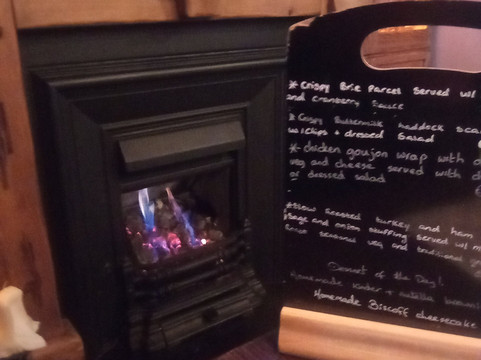 * Crispy Brie Parcel Served w/
and cranberry Sauce
* Crispy Buttermilk haddock
w/chips + dressed Salad
* chicken goujon wrap with
veg and cheese served with
or dressed salad
* Slow Roasted turkey and ham
Sage and onion stuffing Served w/
seasonal veg and traditional
Dessert of the Day!
Homemade Kinder + nutella
Homemade Biscoff cheesecake